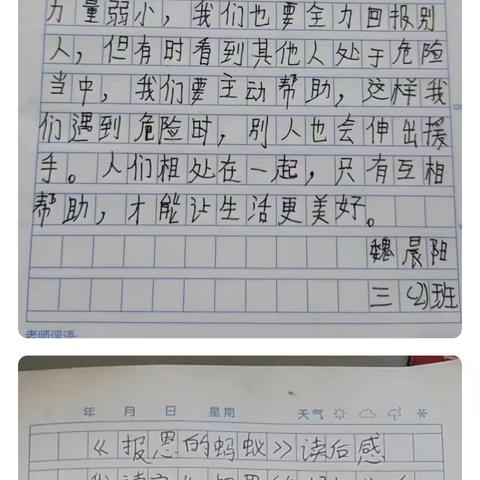 力量弱小，我们也要全力回报别
人，但有时看到其他人处于危险
当中，我们要主动帮助，这样我
们遇到危险时，别人也会伸出援
手。人们相处在一起，只有互相
帮助，才能让生活更美好。
魏晨阳
三（2）班
老师评语:
年 月 日 星期 天气
《报恩的蚂蚁》读后感